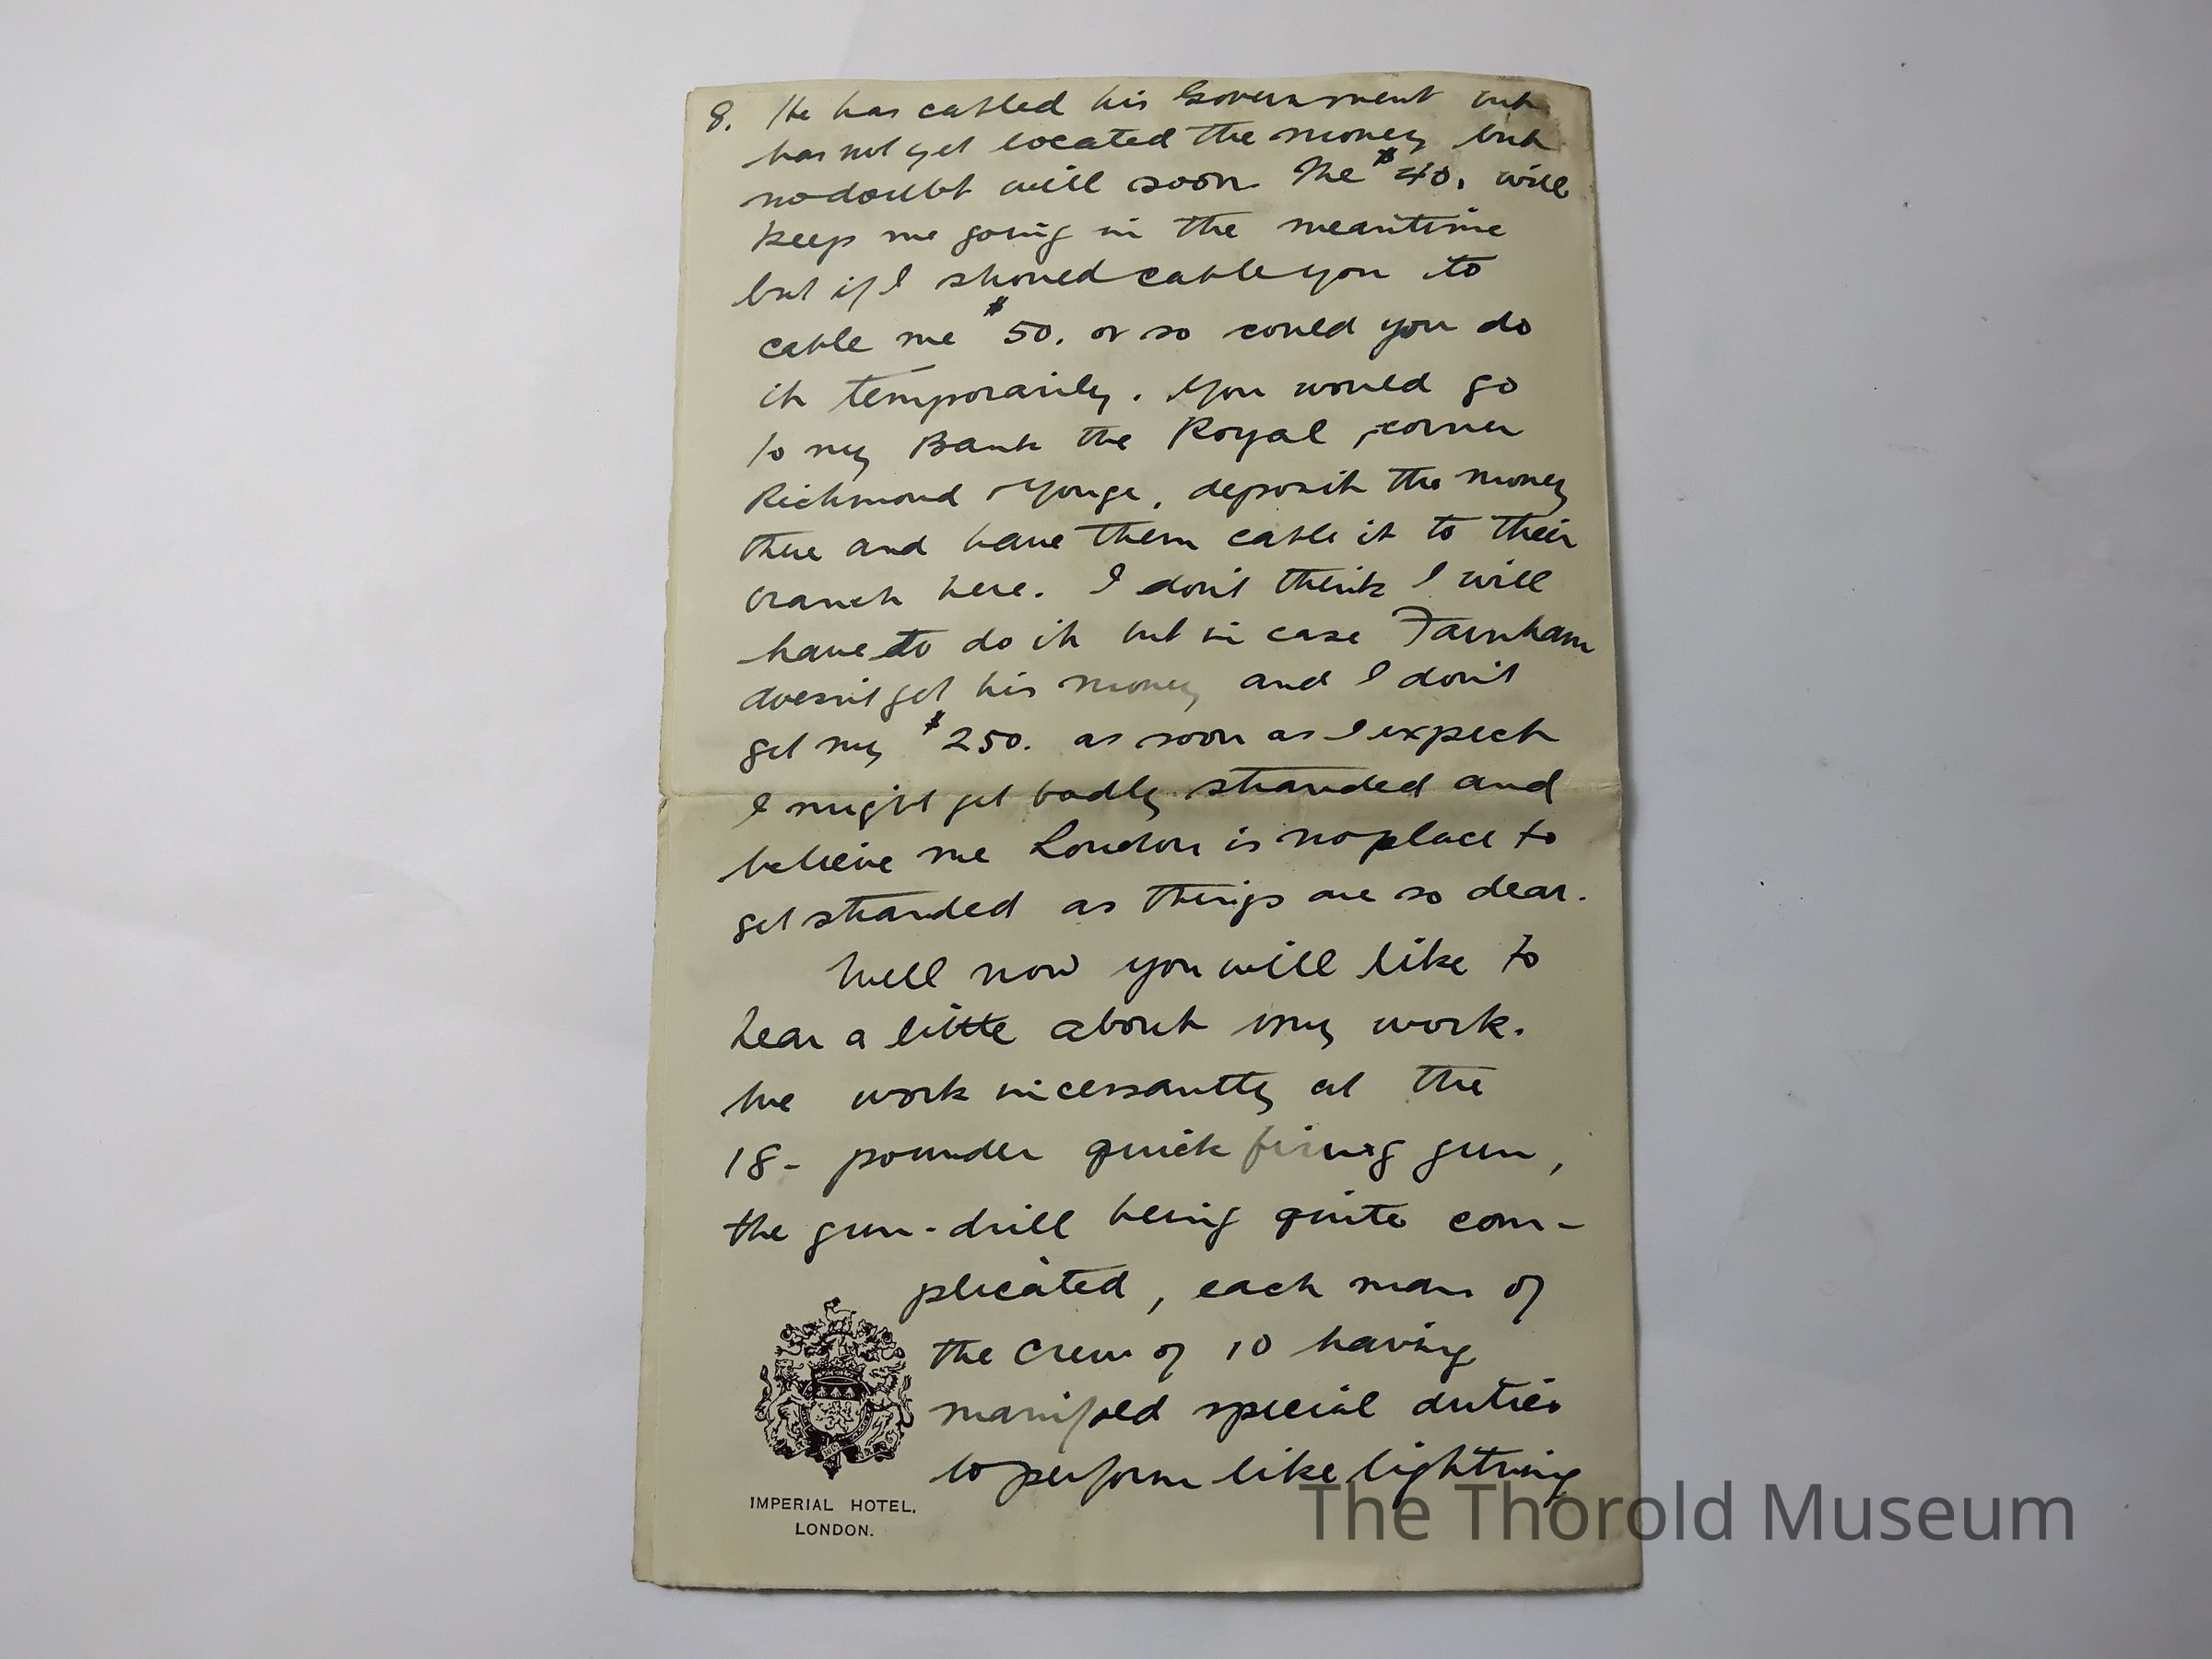 8. He has cabled his Government but
has not yet located the money but
no doubt will soon. The $40. will
keep me going in the meantime
but if I should cable you to
cable me $50. or so could you do
it temporarily. You would go
to my Bank the Royal, corner
Richmond & Yonge, deposit the money
there and have them cable it to their
branch here. I don't think I will
have to do it but in case Farnham
doesn't get his money and I don't
get my $250. as soon as I expect
I might get badly stranded and
believe me London is no place to
get stranded as things are so dear.
Well now you will like to
hear a little about my work.
We work incessantly at the
18-pounder quick firing gun,
the gun-drill being quite com-
plicated, each man of
the crew of 10 having
manifold special duties
to perform like lightning
IMPERIAL HOTEL,
LONDON.
The Thorold Museum